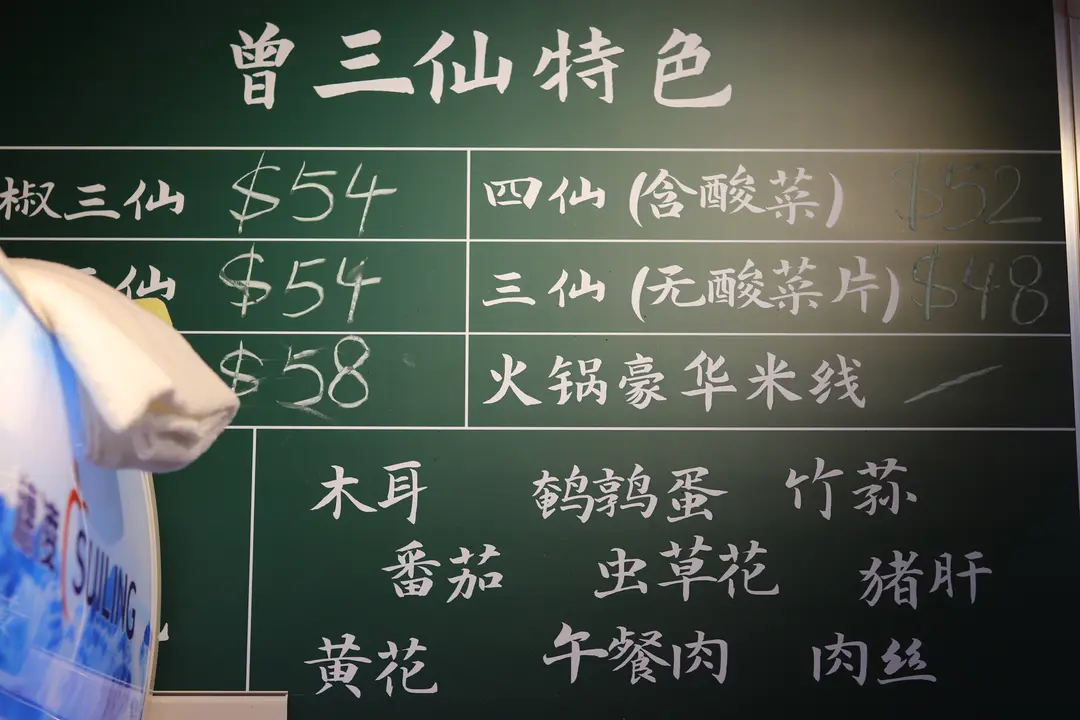 曾三仙特色
椒三仙 $54 四仙(含酸菜) $52
三仙 $54 三仙(无酸菜片) $48
$58 火锅豪华米线
木耳 鹌鹑蛋 竹荪
番茄 虫草花 猪肝
黄花 午餐肉 肉丝
SUILING